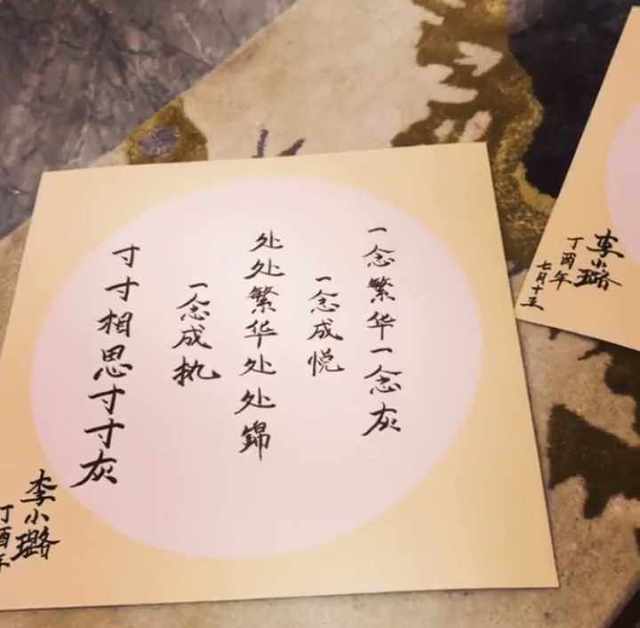 一念繁华一念灰
一念成悦
处处繁华处处錦
一念成执
寸寸相思寸寸灰
李小璐
丁酉年
李小璐
丁酉年
七月十五